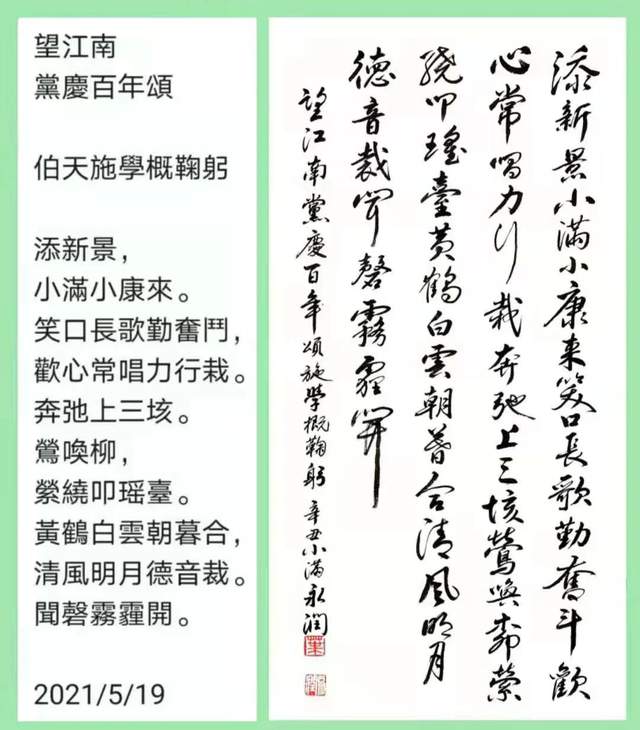 望江南
黨慶百年頌
伯天施學概鞠躬
添新景，
小滿小康來。
笑口長歌勤奮鬥，
歡心常唱力行栽。
奔弛上三垓。
鶯喚柳，
縈繞叩瑶臺。
黃鶴白雲朝暮合，
清風明月德音裁。
聞磬霧霾開。
2021/5/19
添新景小滿小康来笑口長歌勤奮斗歡
心常唱力行栽奔弛上三垓鶯喚柳縈
繞叩瑶臺黄鶴白雲朝暮合清風明月
德音裁聞磬霧霾開
望江南黨慶百年頌施學概鞠躬辛丑小滿永潤